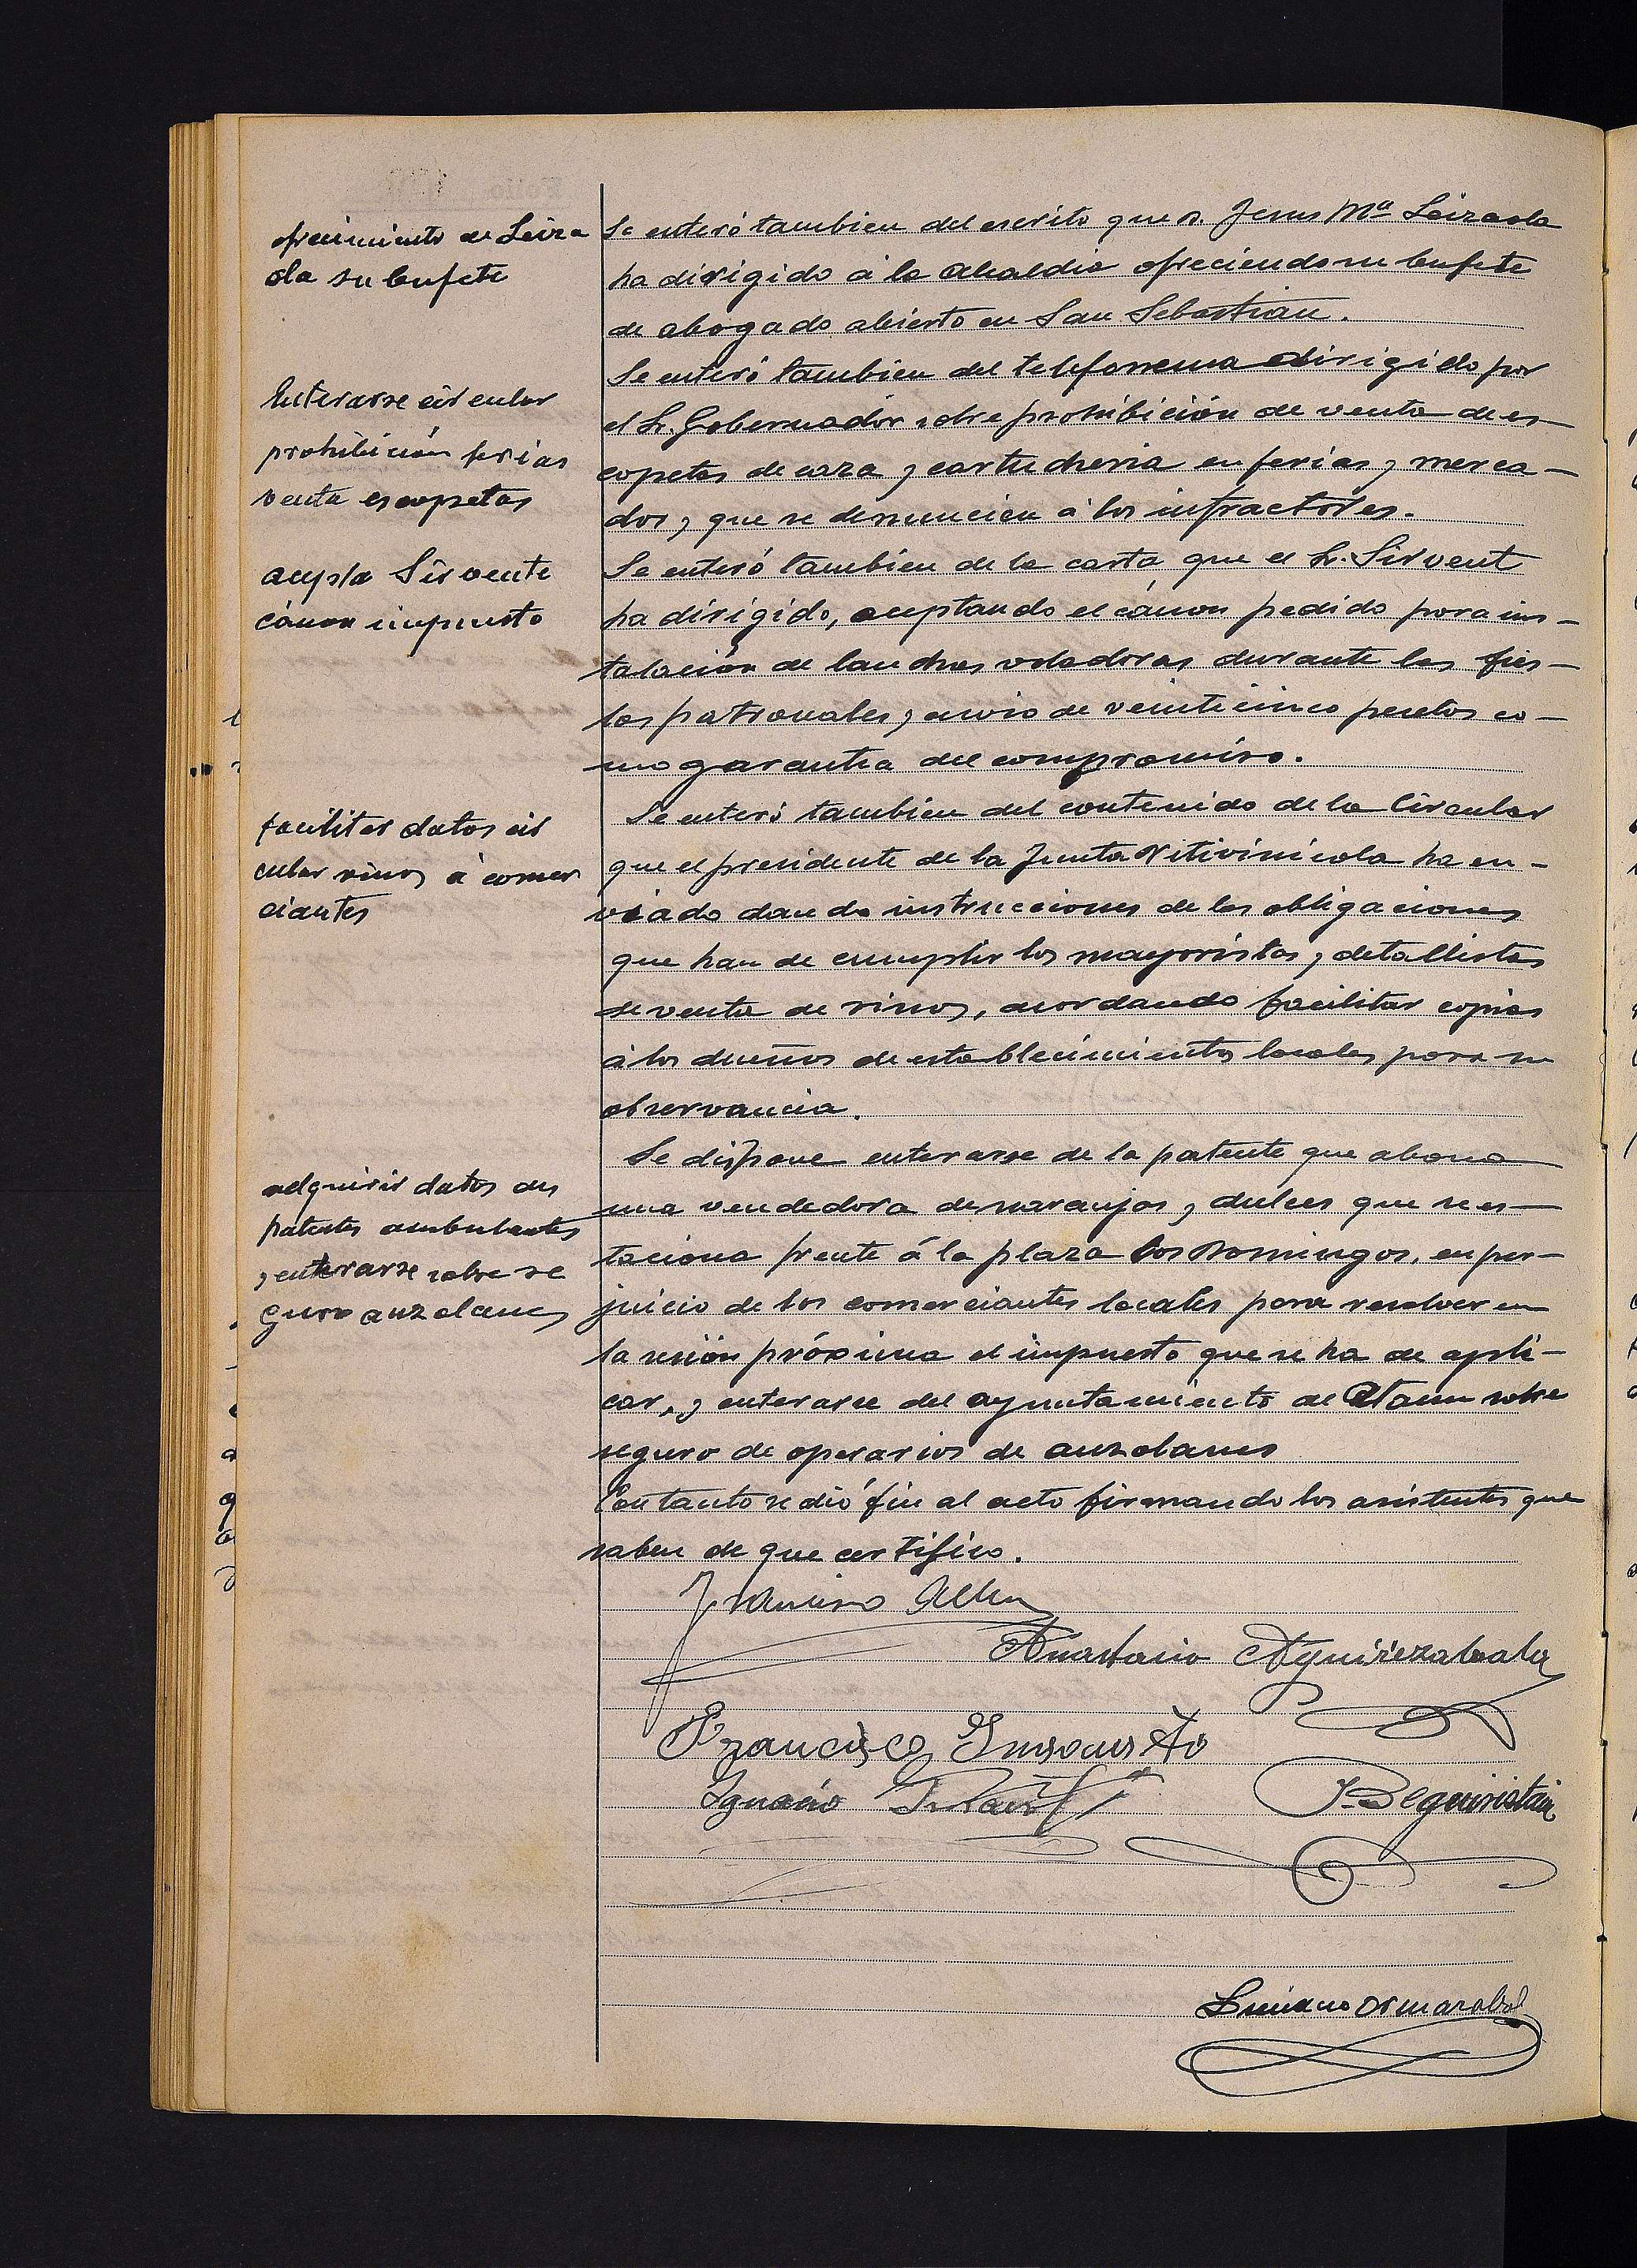 ofrecimiento de Leiza
ola su bufete
Se enteró tambien del escrito que D. Jesus Mª Leizaola
ha dirigido á la Alcaldia ofreciendo su bufete
de abogado abierto en San Sebastián.
Enterarse circular
prohibición ferias
venta escopetas
Se enteró tambien del telefonema dirigido por
el Sr. Gobernador sobre prohibición de venta de es-
copetas de caza y cartucheria en ferias y merca-
dos, y que se denuncien á los infractores.
acepta Sirvente
cánon impuesto
Se enteró tambien de la carta que el Sr. Sirvent
ha dirigido, aceptando el cánon pedido para ins-
talación de lanchas voladoras durante las fies-
tas patronales, y envio de veinticinco pesetas co-
mo garantia del compromiso.
facilitar datos cir
cular vinos á comer
ciantes
Se enteró tambien del contenido de la Circular
que el presidente de la Junta Vitivinicola ha en-
viado dando instrucciones de las obligaciones
que han de cumplir los mayoristas y detallistas
de venta de vinos, acordando facilitar copias
á los dueños de establecimientos locales para su
observancia.
adquirir datos de
patentes ambulantes
y enterarse sobre se
guro auzolanes
Se dispone enterarse de la patente que abona
una vendedora de naranjas y dulces que se es-
taciona frente á la plaza los Domingos, en per-
juicio de los comerciantes locales para resolver en
la sesión próxima el impuesto que se ha de apli-
car, y enterarse del ayuntamiento de Ataun sobre
seguro de operarios de auzolanes
Con tanto se dió fin al acto firmando los asistentes que
saben de que certifico.
Francisco
Anastasio Aguirrezabala
Francisco Insausti
Ignacio
Beguiristain
Luciano Ormazabal